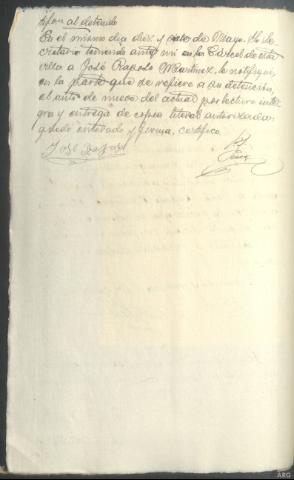 al detenido
En el mismo dia diez y siete de Mayo. Yo Se-
cretario teniendo ante mi en la Carcel de esta
villa a José Rapolo Martinez, le notifiqué
en la parte que se refiere a su detencion,
el auto de nueve del actual por lectura inte-
gra y entrega de copia literal autorizada
quedó enterado y firma, certifico.
José
ARG